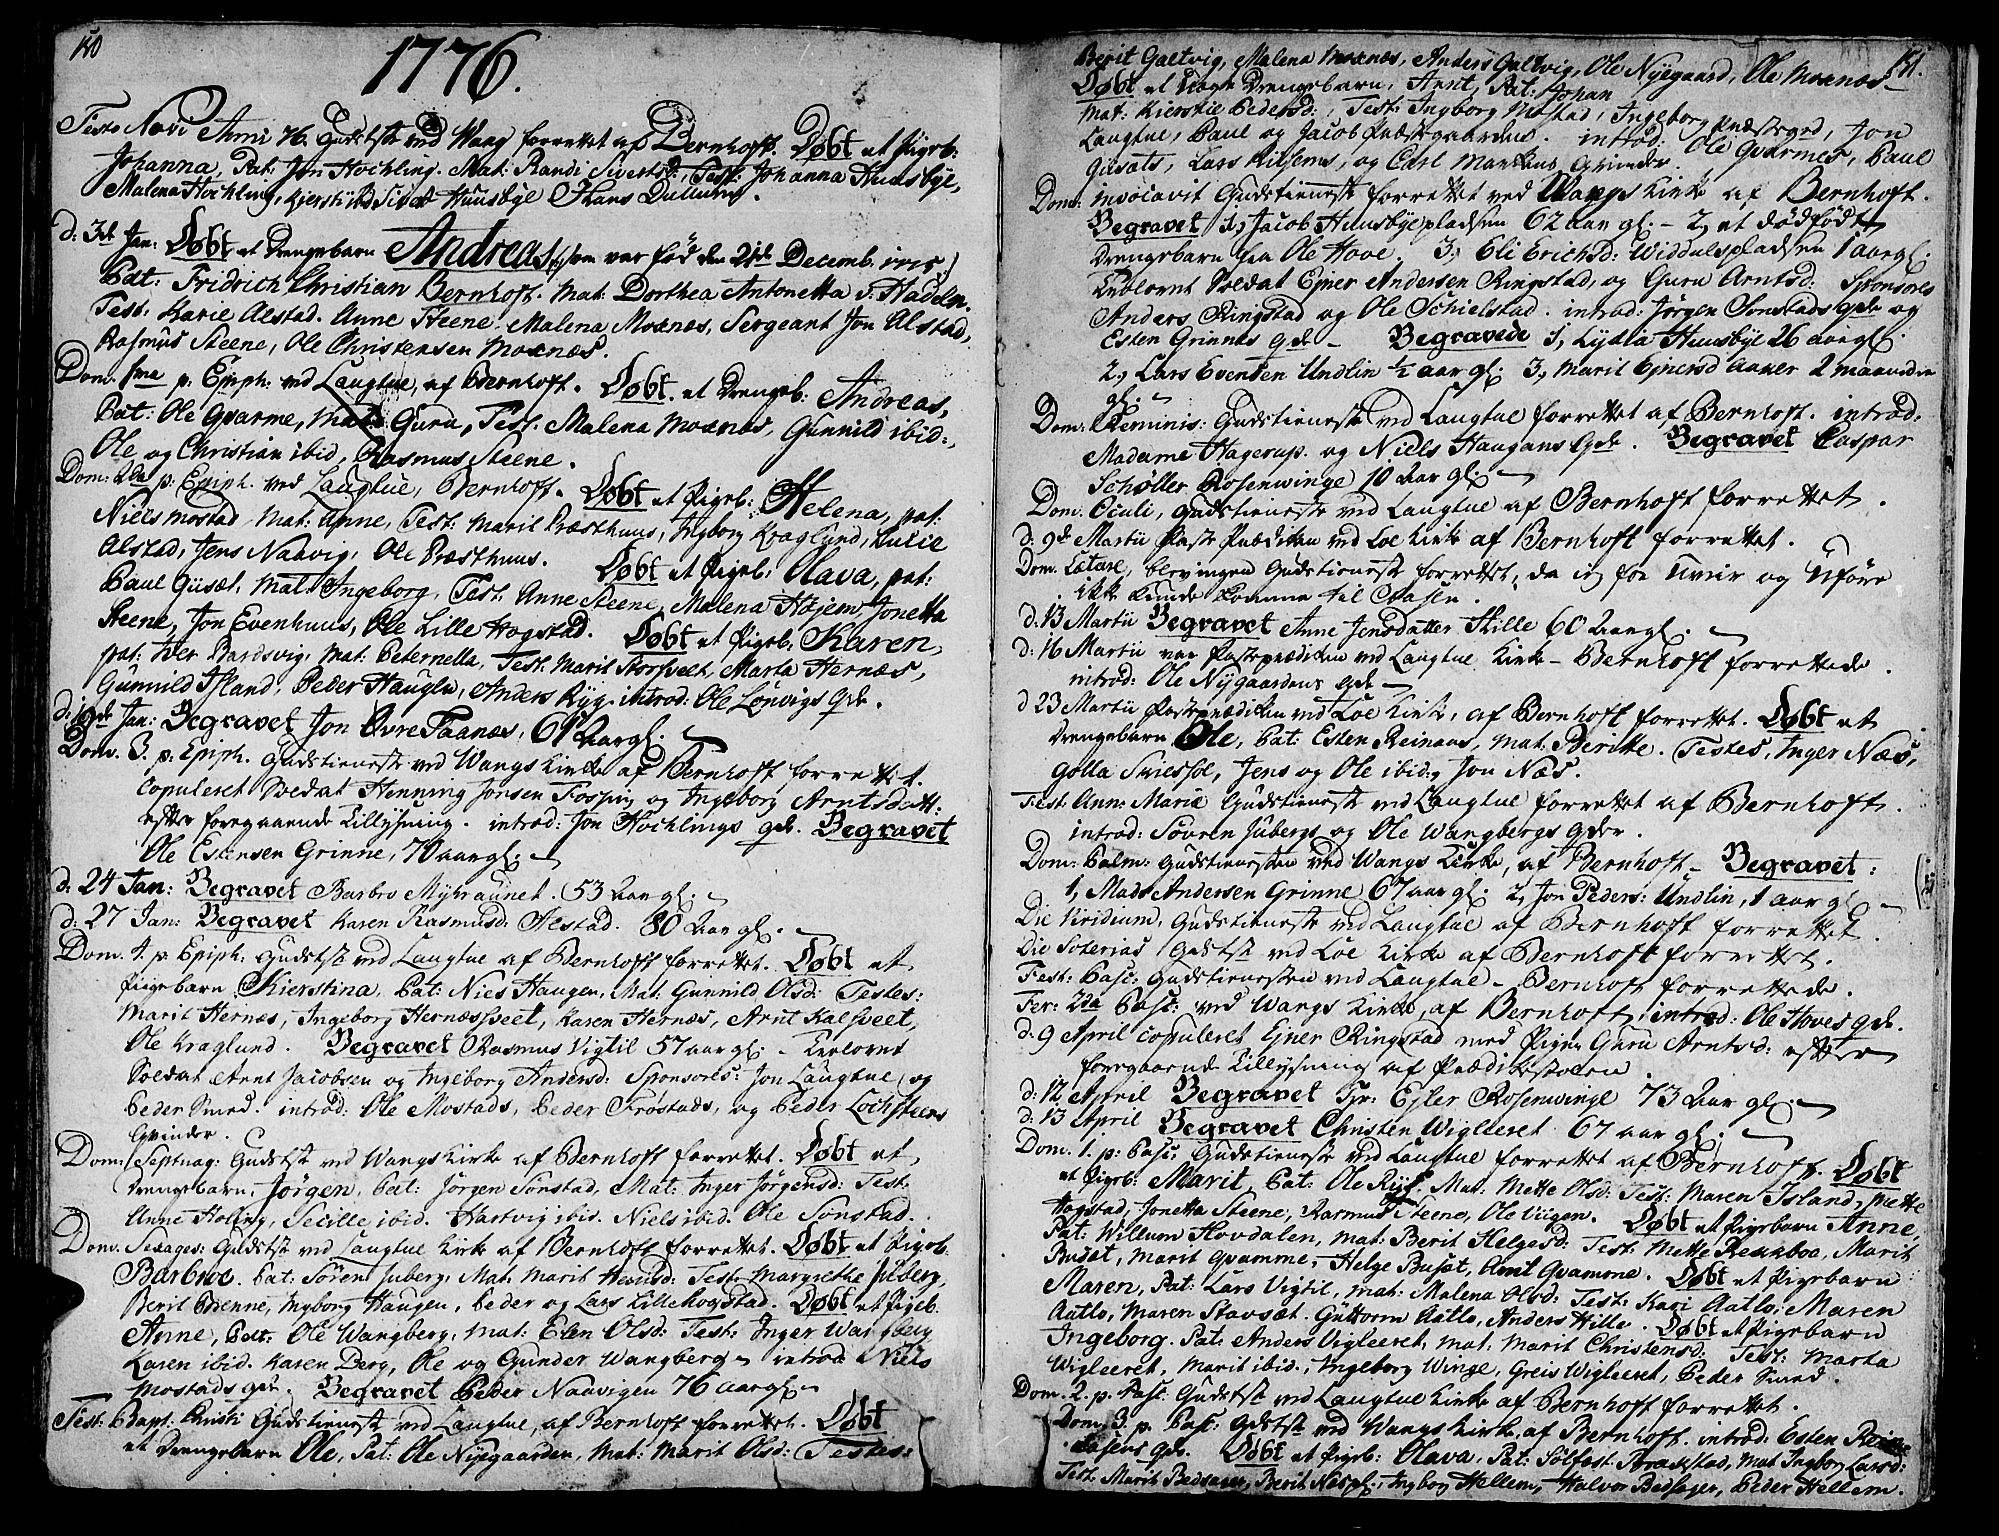 180
1776.
Festo Novi Anni 76. Gudstiste ved Wang forrettet af Bernhoft. Døbt et Pigeb:
Johanna, Pat: Jon Hochling. Mat: Randi Sivertsd: Test: Johanna Huusbye,
Malena Hochling, Kjersti ibid Siva Huusbye Hans Dullum.
d: 3de Jan: Døbt et Drengebarn Andreas, (som var fød den 21de Decemb. 1775)
Pat: Fridrich Christian Bernhoft. Mat: Dorthea Antonetta v: Hadeln.
Test: Karie Alstad. Anne Steene, Malena Moxnæs, Sergeant Jon Alstad,
Rasmus Steene, Ole Christensen Moxnæs.
Dom. 1ma p: Epiph: ved Laugtue, af Bernhoft. Døbt et Drengeb: Andreas,
Pat: Ole Qvarme, Mat: Guru, Test. Malena Moxnæs, Gunnild ibid:,
Ole og Christian ibid, Rasmus Steene.
Dom: 2da p: Epiph. ved Laugtue, Bernhoft. Døbt et Pigeb: Helena, pat:
Niels Mostad, Mat: Anne, Test: Marit Præsthuus, Ingborg Kraglund, Lucie
Alstad, Jens Naavig, Ole Præsthuus. Døbt et Pigeb: Olava, pat:
Paul Gusæt, Mat: Ingeborg, Test: Anne Steene, Malena Hojem, Jonetta
Steene, Jon Evenhuus, Ole Lille Hogstad. Døbt et Pigeb. Karen,
pat: Iver Bardsvig, Mat: Peternella, Test: Marit Storsvelt, Marta Hernæs,
Gunnild Island, Peder Haugen, Anders Ryg. introd: Ole Lønvigs Qde.
d: 19de Jan: Begravet Jon Øvre Faanæs, 61 Aar gl:
Dom. 3. p: Epiph. Gudstieneste ved Wangs Kirke af Bernhoft forrettet.
Copuleret Soldat Henning Jonsen Fossing og Ingeborg Arntsdatt:
efter foregaaende Tillysning. introd: Jon Hochlings qde. Begravet
Ole Estensen Grinne, 70 aar gl:
d. 24 Jan: Begravet Barbro Myhraunet. 53 Aar gl:
d: 27 Jan: Begravet Karen Rasmusd: Hestad. 80 Aar gl.
Dom. 4. p: Epiph: Gudstst ved Laugtue af Bernhoft forrettet. Døbt et
Pigebarn Kierstina, Pat: Niels Haugen, Mat: Gunnild Olsd: Testes:
Marit Hernæs, Ingeborg Hernæssveet, Karen Hernæs, Arnt Kalsveet,
Ole Kraglund. Begravet Rasmus Vigtil 57 aar gl: Trolovet
Soldat Arnt Jacobsen og Ingeborg Andersd: Sponsores: Jon Laugtue, og
Peder Smed. introd: Ole Mostads, Peder Frøstads, og Peder Lochsteens
Qvinder.
Dom: Septuag: Gudstst ved Wangs Kirke af Bernhoft forrettet. Døbt et
Drengebarn, Jørgen, Pat: Jørgen Sonstad, Mat: Inger Jørgensd: Test:
Anne Holing, Secille ibid. Hartvig ibid. Niels ibid. Ole Sonstad.
Dom. Sexages: Gudstst ved Laugtue Kirke af Bernhoft forrettet. Døbt et Pigeb:
Barbroe. Pat: Søren Juberg, Mat: Marit Test: Margrethe Juberg,
Berit Brenne, Ingborg Haugen, Peder og Lars Lillehogstad. Døbt et Pigeb.
Anne, Pat: Ole Wangberg, Mat: Elen Olsd: Test: Inger Wangberg
Karen ibid. Karen Berg, Ole og Gunder Wangberg. introd: Niels
Mostads qde. Begravet Peder Naavigen 76 aar gl:
Fest: Bapt: Christi Gudstieneste ved Laugtue, af Bernhoft forrettet. Døbt
et Drengebarn Ole, Pat: Ole Nygaarden, Mat: Marit Olsd: Testes:
181.
Berit Galtvig, Malena Moxnæs, Anders Galtvig, Ole Nyegaard, Ole Moxnæs
Døbt et Drengebarn, Arnt, Pat: Johan
Mat: Kierstie Pedersd:, Test: Ingborg Mostad, Ingeborg Præstegrd, Jon
Laugtue, Paul og Jacob Præstegaarden. introd: Ole Qvarmes, Paul
Gusæts, Lars Ritsems, og Carl Qvinder.
Dom: invocavit Gudstieneste forrettet ved Wangs Kirke af Bernhoft.
Begravet 1, Jacob Huusbyepladsen 62 aar gl. 2, et dødfødt
Drengebarn fra Ole Hove. 3, Eli Erichsd: Widdalspladsen 1 aar gl:
Trolovet Soldat Ejner Andersen Ringstad, og Guru Arntsd: Sponsores
Anders Ringstad og Ole Schielstad. introd: Jørgen Sonstads qde og
Esten Grinnes qde. Begravede 1, Lydia Huusbye 26 aar gl:
2, Lars Evensen Undlin ½ aar gl: 3, Marit Ejnersd Aaker 2 maaneder
gl.
Dom: Reminis: Gudstieneste ved Laugtue forrettet af Bernhoft. introd:
Madame Hagerup. og Niels Haugans qde. Begravet Caspar
Schøller Rosenwinge 10 Aar gl:
Dom. Oculi, Gudstieneste ved Laugtue af Bernhoft forrettet.
d: 9de Martii Faste Prædiken ved Loe Kirke af Bernhoft forrettet.
Dom. Lætare, blev ingen Gudstieneste forrettet, da jeg for Uveir og Uføre
ikke kunde komme til
d: 13 Martii Begravet Anne Jensdatter Hille 60 Aar gl.
d: 16 Martii var Fasteprædiken ved Laugtue Kirke Bernhoft forrettede.
introd: Ole Nygaardens qde
d 23 Martii Fasteprædiken ved Loe Kirke, af Bernhoft forrettet. Døbt et
Drengebarn Ole, Pat: Esten Reinaas, Mat: Beritte. Testes, Inger Næs,
Golla Jens og Ole ibid, Jon Næs.
Fest: Ann: Mariæ Gudstieneste ved Laugtue forrettet af Bernhoft.
introd: Søvren Jubergs og Ole Wangbergs Qder.
Dom: Palm: Gudstienesten ved Wangs Kirke, af Bernhoft. Begravet:
1, Mads Andersen Grinne 67 aar gl: 2, Jon Peders: Undlin, 1 aar gl
Die Viridium, Gudstieneste ved Laugtue af Bernhoft forrettet.
Die Soterias Gudstst ved Loe Kirke af Bernhoft forrettet.
Fest: Pasc: Gudstienesten ved Laugtue Bernhoft forrettede.
Fer: 2da Pasc: ved Wangs Kirke, af Bernhoft, introd: Ole Hoves qde.
d: 9 April Copuleret Ejner Ringstad med Pigen Guru Arntsd: efter
foregaaende Tillysning af Prædikestolen.
d: 12 April Begravet Fr: Ejler Rosenwinge 73 Aar gl:
d: 13 April Begravet Christen Wigleeret 67 aar gl:
Dom. 1. p: Pasc: Gudstieneste ved Laugtue forrettet af Bernhoft. Døbt
et Pigeb: Marit, Pat: Ole Ryg. Mat: Mette Olsd: Test: Maren Island, Mette
Hogstad, Jonetta Steene, Rasmus Steene, Ole Viigen. Døbt et Pigebarn Anne,
Pat: Willum Hovdalen, Mat: Berit Helgesd: Test: Mette Reekboe, Marit
Busæt, Marit Qvamme, Helge Busæt, Arnt Qvamme. Døbt et Pigebarn
Maren, Pat: Lars Vigtil, Mat: Malena Olsd: Test: Kari Aatlo, Maren
Aatlo, Maren Stavsæt. Guttorm Aatlo, Anders Hille. Døbt et Pigebarn
Ingeborg. Pat: Anders Vigleeret, Mat: Marit Christensd: Test: Marta
Wigleeret, Marit ibid., Ingeborg Winge, Greis Wigleeret, Peder Smed.
Dom. 2. p. Pasc: Gudstst ved Laugtue Kirke af Bernhoft forrettet.
Dom. 3. p. Pasc: Gdstst ved Wangs Kirke, af Bernhoft. introd: Esten
qde. Døbt et Pigeb: Olava, Pat: Solfest Mat Ingborg Larsd:
Test: Marit Bedsager, Berit Næspl:, Ingborg Hellem, Halvor Bedsager, Peder Hellem.